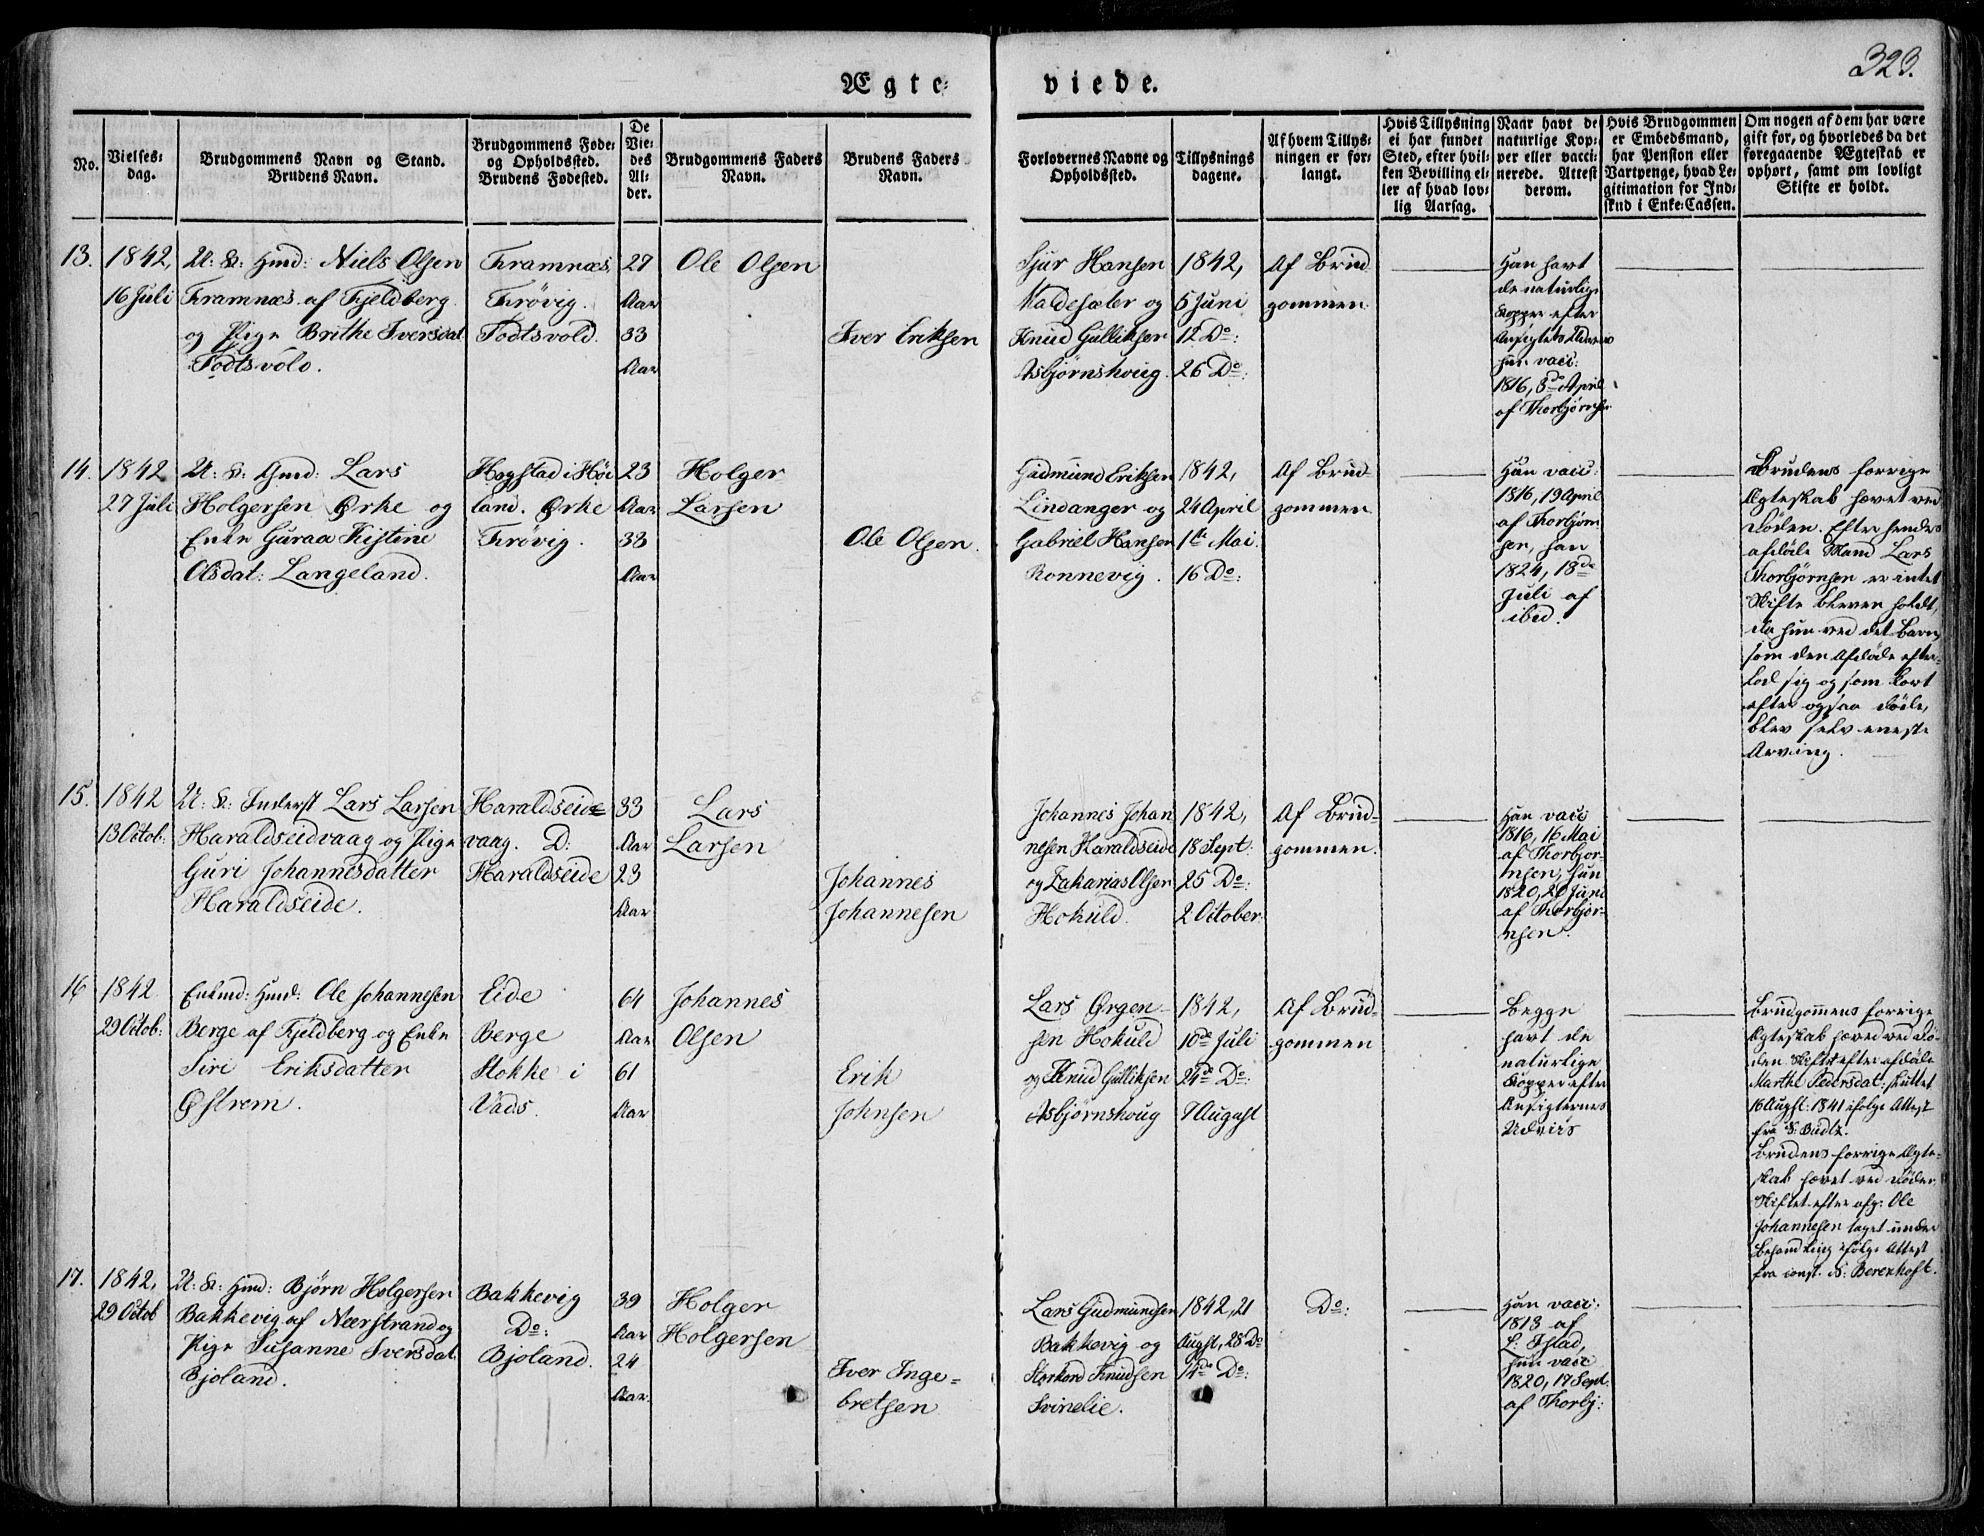 323.
Ægte-
viede.
No.
Vielses-
dag.
Brudgommens Navn og Stand.
Brudens Navn.
Brudgommens Føde-
og Opholdssted.
Brudens Fødested.
De
Vie-
des
Al-
der.
Brudgommens Faders
Navn.
Brudens Faders
Navn.
Forlovernes Navne og
Opholdssted.
Tillysnings
dagene.
Af hvem Tillys-
ningen er for-
langt.
Hvis Tillysning
ei har fundet
Sted, efter hvil-
ken Bevilling el-
ler af hvad lov-
lig Aarsag.
Naar havt de
naturlige Kop-
per eller vacci-
nerede. Attest
derom.
Hvis Brudgommen
er Embedsmand,
har Pension eller
Vartpenge, hvad Le-
gitimation for Ind-
skud i Enke-Cassen.
Om nogen af dem har være
gift før, og hvorledes da det
foregaaende Ægteskab er
ophørt, samt om lovligt
Skifte er holdt.
13.
1842,
16 Juli
U: K: Gmd: Niels Olsen
Framnæs af Fjeldberg
og Pige Brithe Iversdat
Todtsvold.
Framnæs
Frøvig.
Todtsvold.
27
Aar
33
Aar
Ole Olsen
Iver Eriksen
Sjur Hansen
Valdesæler og
Knud Gulliksen
Asbjørnshoug.
1842,
5 Juni
12 Do:
26 Do:
Af Brud
gommen
Han havt
de naturlige
Kopper efter
Ansigtets Udviis
hun vacc:
1816, 3de April
af Thorbjørnsen
14.
1842
27 Juli
U: K: Gmd: Lars
Holgersen Ørke og
Enke Guraa Kistine
Olsdat: Langeland.
Hogstad i Høi
land. Ørke
Frøvig.
23
Aar
33
Aar
Holger
Larsen
Ole Olsen.
Gudmund Eriksen
Lindanger og
Gabriel Hansen
Ronnevig.
1842,
24 April
1ste Mai.
16 Do:
Af Brud-
gommen
Hun vacc:
1816, 19 April
af Thorbjørn
sen, han
1824, 18de
Juli af
ibid.
Brudens forrige
Ægteskab hævet ved
Døden. Efter hendes
afdøde Mand Lars
Thorbjørnsen er intet
Skifte bleven holdt,
da hun ved det Barn,
som den Afdøde efter-
lod sig og som kort
efter ogsaa døde,
blev selv eneste
Arving.
15.
1842
13 Octob:
U: K: Inderst Lars Larsen
Haraldseidvaag og Pige
Guri Johannesdatter
Haraldseide.
Haraldseid-
vaag. D:
Haraldseide
33
Aar
23
Aar
Lars
Larsen
Johannes
Johannesen
Johannes Johan
nesen Haraldseide
og Zakarias Olsen
Hokuld.
1842,
18 Sept:
25 Do:
2 October
Af Brud-
gommen.
Han vacc
1816, 16 Mai
af Thorbjør-
nsen, hun
1820, 20 Juni
af Thorbjør-
nsen.
16
1842
29 Octob:
Enkmd: Gmd: Ole Johannesen
Berge af Fjeldberg og Enke
Siri Eriksdatter
Østrem.
Eide
Berge
Stokke i
Vads.
64
Aar
61
Aar
Johannes
Olsen
Erik
Johnsen
Lars Ørgen-
sen Hokuld
og Knud Gulliksen
Asbjørnshoug
1842,
10de Juli
24de Do:
7 August
Af Brud-
gommen
Begge
havt de
naturlige
Kopper efter
Ansigternes
Udviis
Brudgommens forrige
Ægteskab hævet ved Dø-
den. Skiftet efter afdøde
Marthe Pedersdat: sluttet
16 Augst: 1841 ifølge Attest
fra S: Budtz.
Brudens forrige Ægte-
skab hævet ved Døden
Skiftet efter afg: Ole
Johannesen taget under
Behandling ifølge Attest
fra const. S: Berenhoft.
17.
1842,
29 Octob
U: K: Gmd: Bjørn Holgersen
Bakkevig af Nærstrand og
Pige Susanne Iversdat
Bjoland.
Bakkevig
Do:
Bjoland.
39
Aar
24
Aar.
Holger
Holgersen
Iver Inge-
bretsen
Lars Gudmundsen
Bakkevig og
Storkord Knudsen
Svinelie.
1842, 21
Augst, 28 Do
14de Do:
Do:
Han vacc:
1813 af
L: Tstad,
hun vacc
1820, 17 Sept.
af Thorbj: